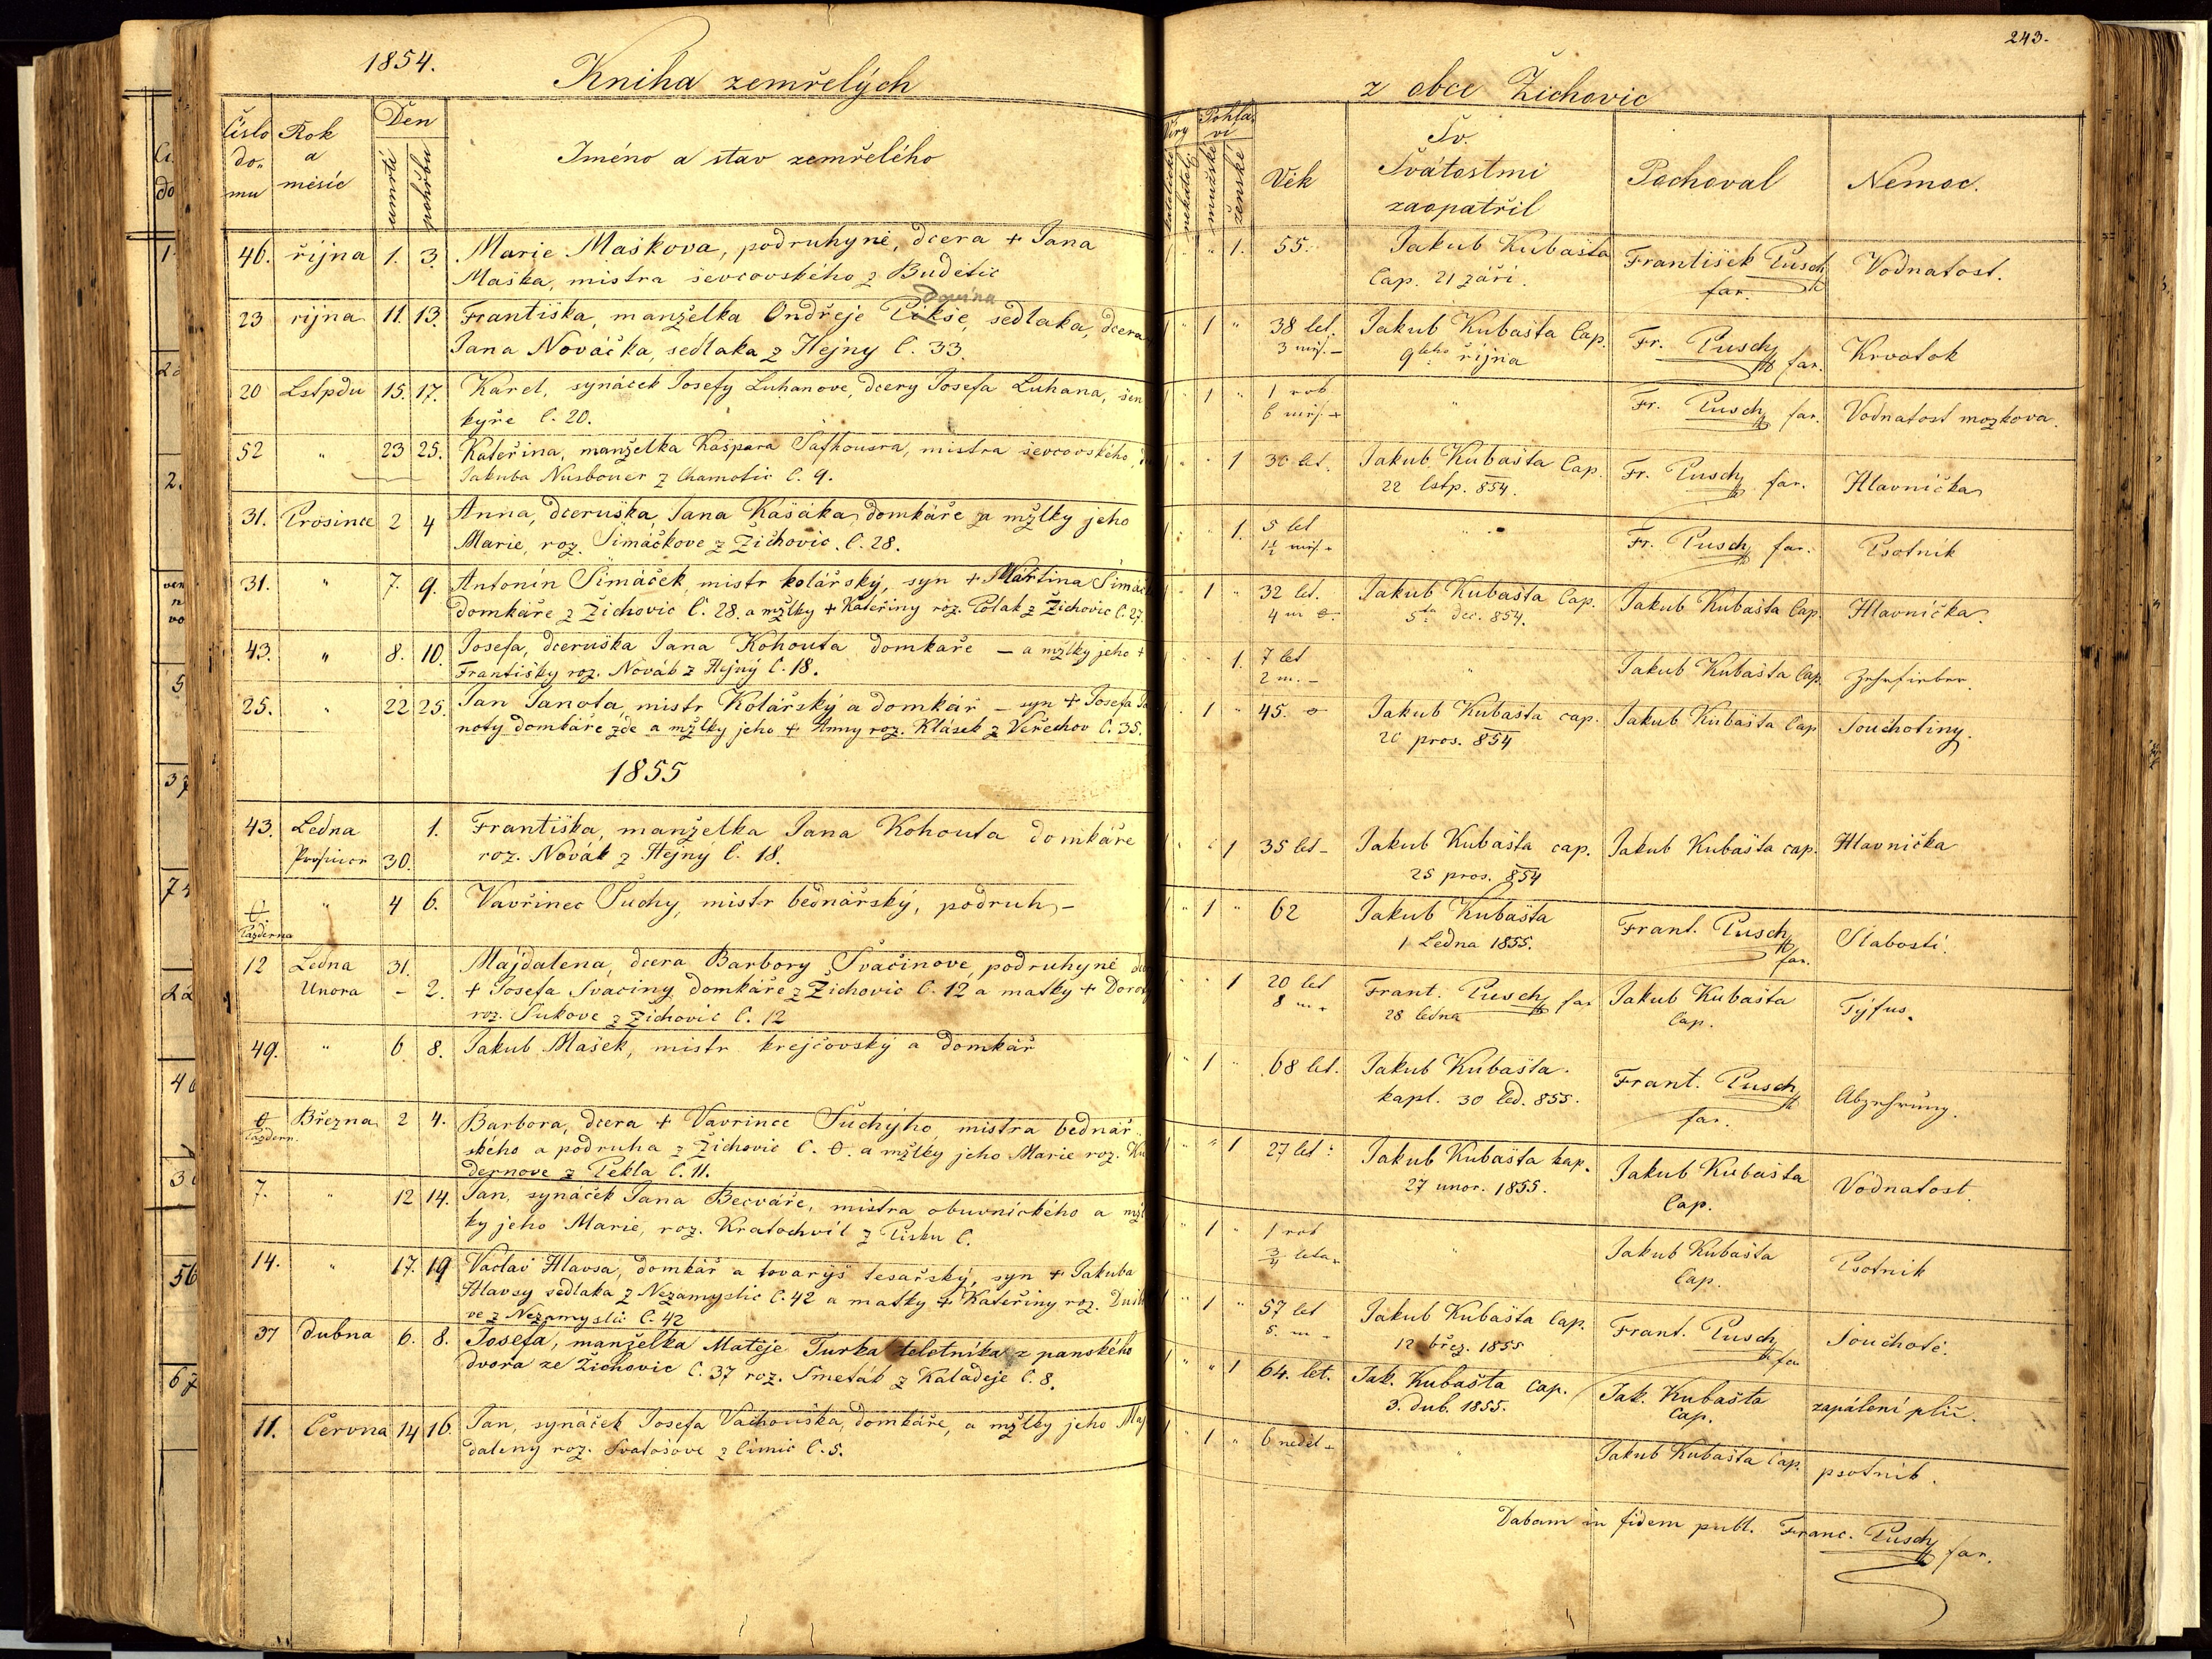 1854.
Kniha zemřelých
Číslo do mu
Rok a měsíc
Den
úmrtí
pohřbu
Jméno a stav zemřelého
46. října 1. 3. Marie Maškova, podruhyně, dcera + Jana
Maška, mistra ševcovského z Budětic
Dovina
23 rijna 11. 13. Františka, manželka Ondřeje Pikše, sedlaka, dcera
Jana Nováčka, sedlaka z Hejny č. 33.
20 Lstpdu 15. 17. Karel, synáček Josefy Luhanove, dcery Josefa Luhana, šen
kyře č. 20.
52 " 23 25. Kateřina, manželka Kašpara Šafhousra, mistra ševcovského,
Jakuba Nusbouer z Chamotic č. 9.
31. Prosince 2 4 Anna, dceruška Jana Kašáka, domkáře a mžlky jeho
Marie, roz. Šimáčkove z Žichovic. č. 28.
31. " 7. 9. Antonín Šimáček, mistr kolářský, syn + Martina Šimáč
domkáře z Žichovic č. 28. a mžlky + Kateřiny roz. Polak z Žichovic č. 27.
43. " 8. 10. Josefa, dceruška Jana Kohouta domkaře – a mžlky jeho +
Františky roz. Novák z Hejný č. 18.
25. " 22 25. Jan Janota, mistr Kolářský a domkář – syn + Josefa Ja
noty domkáře zde a mžlky jeho + Anny roz. Klásek z Veřechov č. 35.
1855
43. Ledna 1. Františka, manželka Jana Kohouta domkáře
Prosince 30. roz. Novák z Hejný č. 18.
0 Pazderna " 4 6. Vavřinec Suchy, mistr bednářský, podruh –
12 Ledna 31. Majdalena, dcera Barbory Svačinove, podruhyně
Unora – 2. + Josefa Svaciny, domkáře z Žichovic č. 12 a matky + Dorot
roz. Sukove z Žichovic č. 12
49. " 6. 8. Jakub Mašek, mistr krejčovský a domkář
0 Pazdern. Března 2 4. Barbora, dcera + Vavrince Suchýho mistra bednář
ského a podruha z Žichovic č. 0. a mžlky jeho Marie roz. Ku
dernove z Pekla č. 11.
7. " 12 14. Jan, synáček Jana Becváře, mistra obuvnického a mžl
ky jeho Marie, roz. Kratochvíl z Pisku č.
14. " 17. 19 Václav Hlavsa, domkář a tovaryš tesařský, syn + Jakuba
Hlavsy sedlaka z Nezamyslic č. 42 a matky + Kateřiny roz.
ve z Nezamyslic č. 42
37 dubna 6. 8. Josefa, manželka Mateje Turka teletníka z panského
dvora ze Žichovic č. 37 roz. Smeták z Kaladeje č. 8.
11. Června 14 16. Jan, synáček Josefa Vachouška, domkáře, a mžlky jeho Maj
daleny roz. Svatošove z Čimic č. 5.
243.
z obce Žichovic
Víry
katolické
nekatolic
Pohla vi
mužské
ženské
Věk
Sv. Svátostmi zaopatřil
Pochoval
Nemoc.
1. 55. Jakub Kubašta Cap. 21 září. František Pusch far. Vodnatost.
1 " 38 let. 3 měs. – Jakub Kubašta Cap. 9teho října Fr. Pusch far. Krvotok
1 " 1 rok 6 měs. " Fr. Pusch far. Vodnatost mozkova.
" 1 30 let. Jakub Kubašta Cap. 22 lstp. 854. Fr. Pusch far. Hlavnička
" 1. 5 let 1½ měs. " Fr. Pusch far. Psotník
1 " 32 let. 4 m Jakub Kubašta Cap. 5ta dec. 854. Jakub Kubašta Cap. Hlavnička.
" 1. 7 let 2 m. – " Jakub Kubašta Cap. Zehrfieber.
1 " 45. Jakub Kubašta cap. 20 pros. 854 Jakub Kubašta Cap Souchotiny.
" 1 35 let – Jakub Kubašta cap. 25 pros. 854 Jakub Kubašta cap. Hlavnička
1 " 62 Jakub Kubašta 1 Ledna 1855. Frant. Pusch far. Slabosti.
" 1 20 let 8 m. Frant. Pusch far 28 ledna Jakub Kubašta Cap. Tyfus.
1 " 68 let. Jakub Kubašta. kapl. 30 Led. 855. Frant. Pusch far. Abzehrung.
" 1 27 let Jakub Kubašta kap. 27 unor. 1855. Jakub Kubašta Cap. Vodnatost.
1 " 1 rok ¾ leta " Jakub Kubašta Cap. Psotnik
1 " 57 let 5. m – Jakub Kubašta Cap. 12 břez. 1855 Frant. Pusch far Souchotě.
" 1 64. let. Jak. Kubašta Cap. 3. dub. 1855. Jak. Kubašta Cap. zapálení plíc.
1 " 6 neděl – " Jakub Kubašta Cap. psotník.
Dabam in fidem publ. Franc. Pusch far.